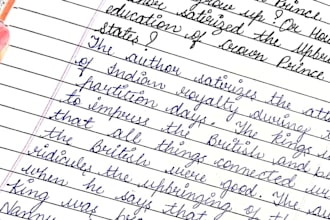 grow up? Or How
satirized the upbri
education of crown Prince
States?
The author satirizes the att
of Indian royalty during
partition days. The kings
to impress the British and b
that all things connected w
the British were good. The a
ridicules the upbringing of t
when he says that t
king was b
Nanny